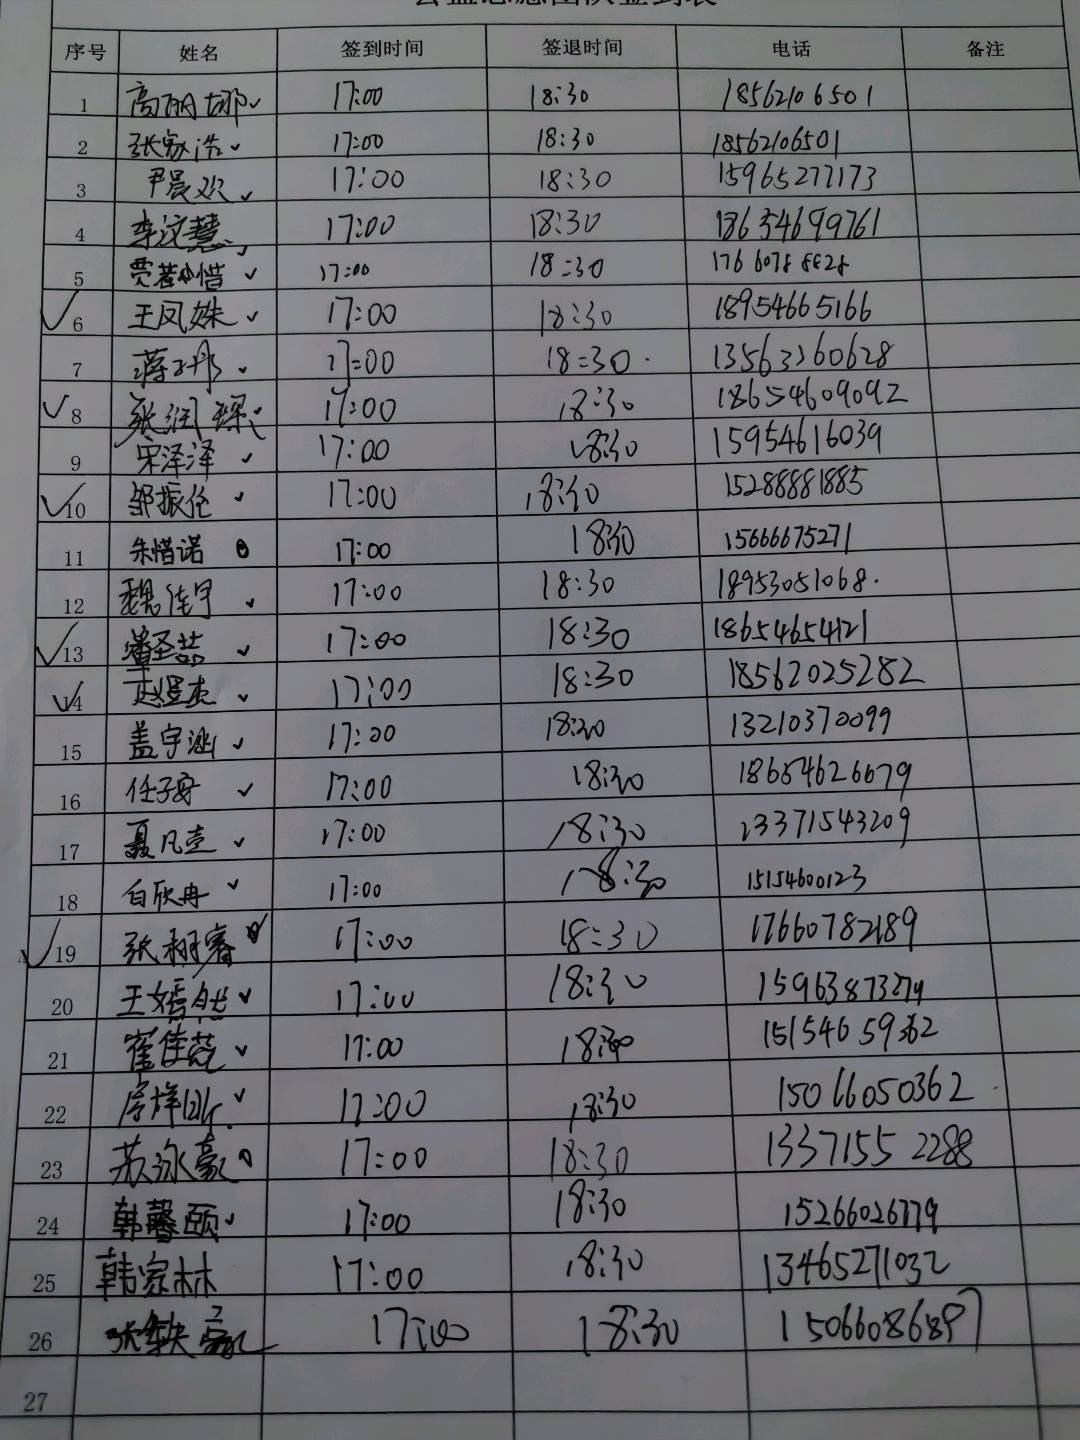 序号 姓名 签到时间 签退时间 电话 备注
1 高丽娜 17:00 18:30 18562106501
2 张家浩 17:00 18:30 18562106501
3 尹晨欢 17:00 18:30 15965277173
4 李汶慧 17:00 18:30 18654699761
5 17:00 18:30 17660788828
6 王凤姝 17:00 18:30 18954665166
7 17:00 18:30 13563360628
8 张润琛 17:00 18:30 18654609092
9 宋泽泽 17:00 18:30 15954616039
10 邹振任 17:00 18:30 15288881885
11 朱惜诺 17:00 18:30 15666675271
12 魏佳宇 17:00 18:30 18953051068
13 17:00 18:30 18654654121
14 17:00 18:30 18562025282
15 盖宇涵 17:00 18:30 13210370099
16 任子安 17:00 18:30 18654626679
17 聂凡壹 17:00 18:30 13371543209
18 白欣冉 17:00 18:30 15154600123
19 张栩睿 17:00 18:30 17660782189
20 王嫣然 17:00 18:30 15963873279
21 崔佳苑 17:00 18:30 15154659362
22 17:00 18:30 15066050362
23 苏泳豪 17:00 18:30 13371552288
24 韩馨颐 17:00 18:30 15266026779
25 韩家林 17:00 18:30 13465271032
26 17:00 18:30 15066086897
27